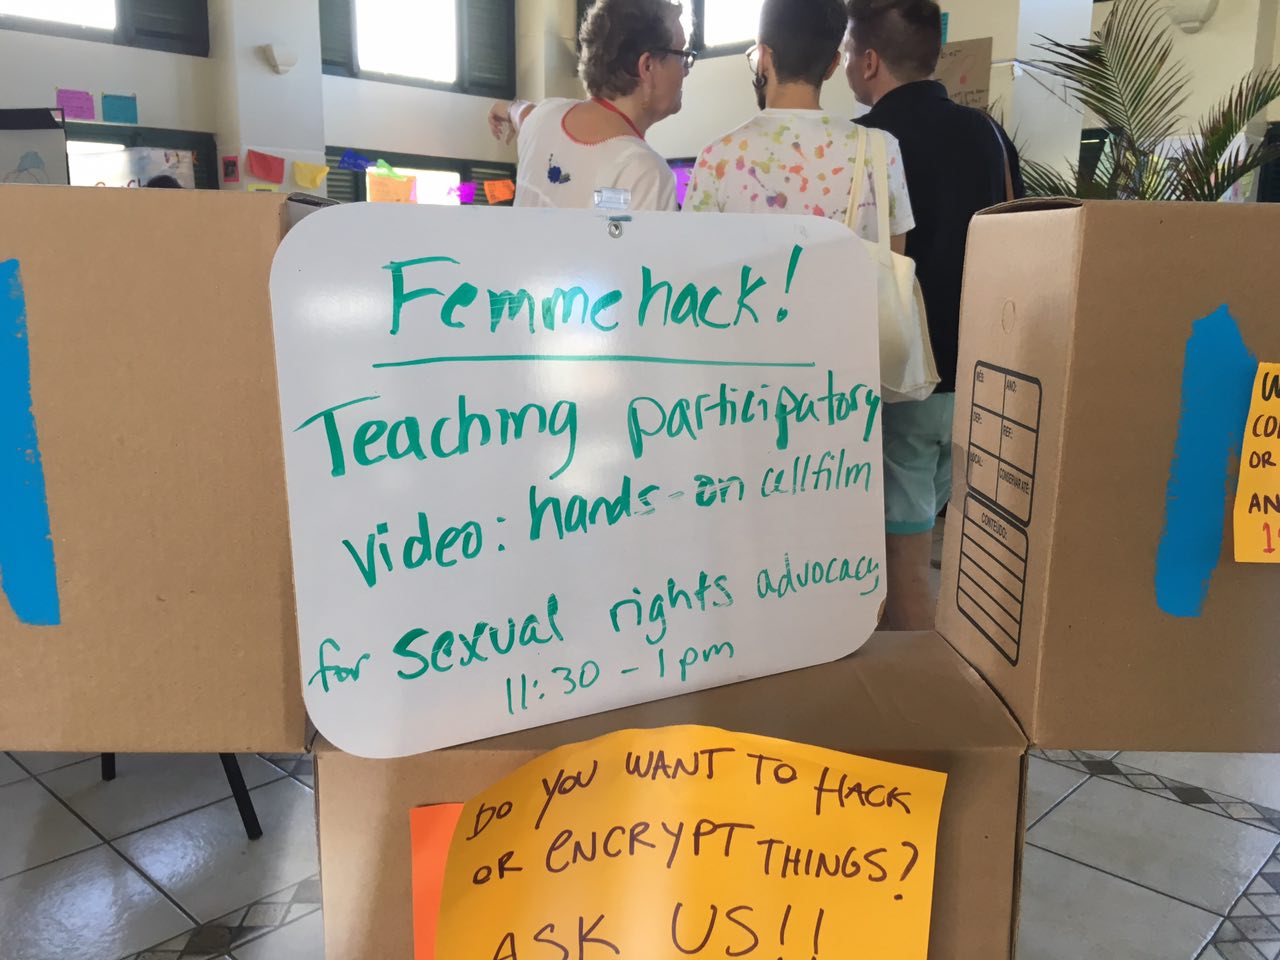 Femmehack!
Teaching participatory
video: hands-on cellfilm
for sexual rights advocacy
11:30 - 1pm
DO YOU WANT TO HACK
OR ENCRYPT THINGS?
ASK US!!
MÊS:
ANO:
DEP.:
REF.:
LOCAL:
CONSERVAR ATÉ:
CONTEÚDO:
OR